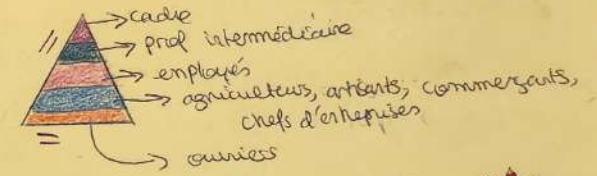 cadre
prof intermédiaire
employés
agriculteurs, artisants, commerçants,
chefs d'entreprises
ouvriers